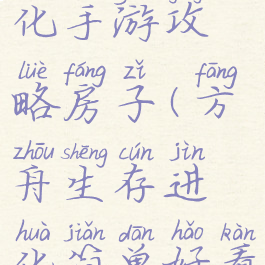 化手游攻
lüè fáng zǐ fāng
略房子(方
zhōu shēng cún jìn
舟生存进
huà jiǎn dān hǎo kàn
化简单好看